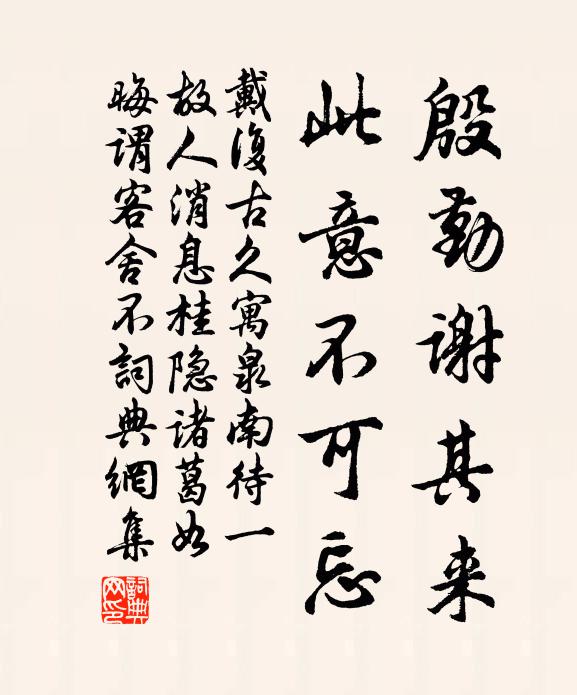 殷勤謝其来
此意不可忘
戴復古久寓泉南待一
故人消息桂隐諸葛如
晦谓客舍不詞典網集
詞典網印